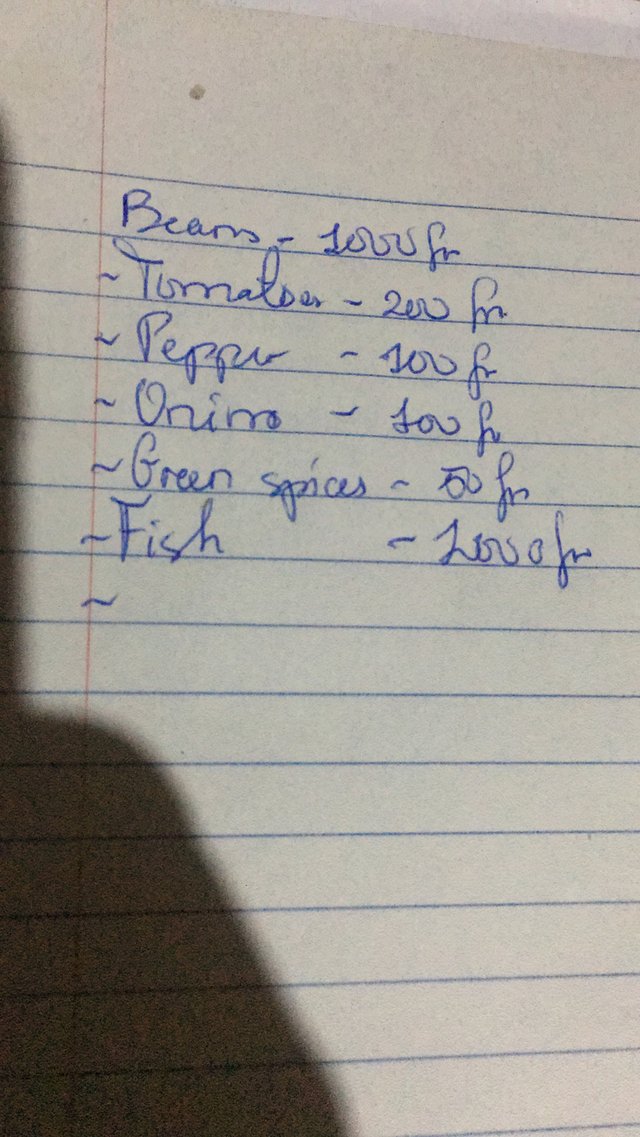 Beans - 1000 fr
~ Tomatoes - 200 fr
~ Pepper - 100 fr
~ Onion - 100 fr
~ Green spices - 50 fr
~ Fish - 1000 fr
~